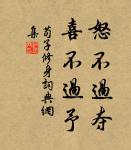 怒不過夺
喜不過予
荀子修身詞典網
集